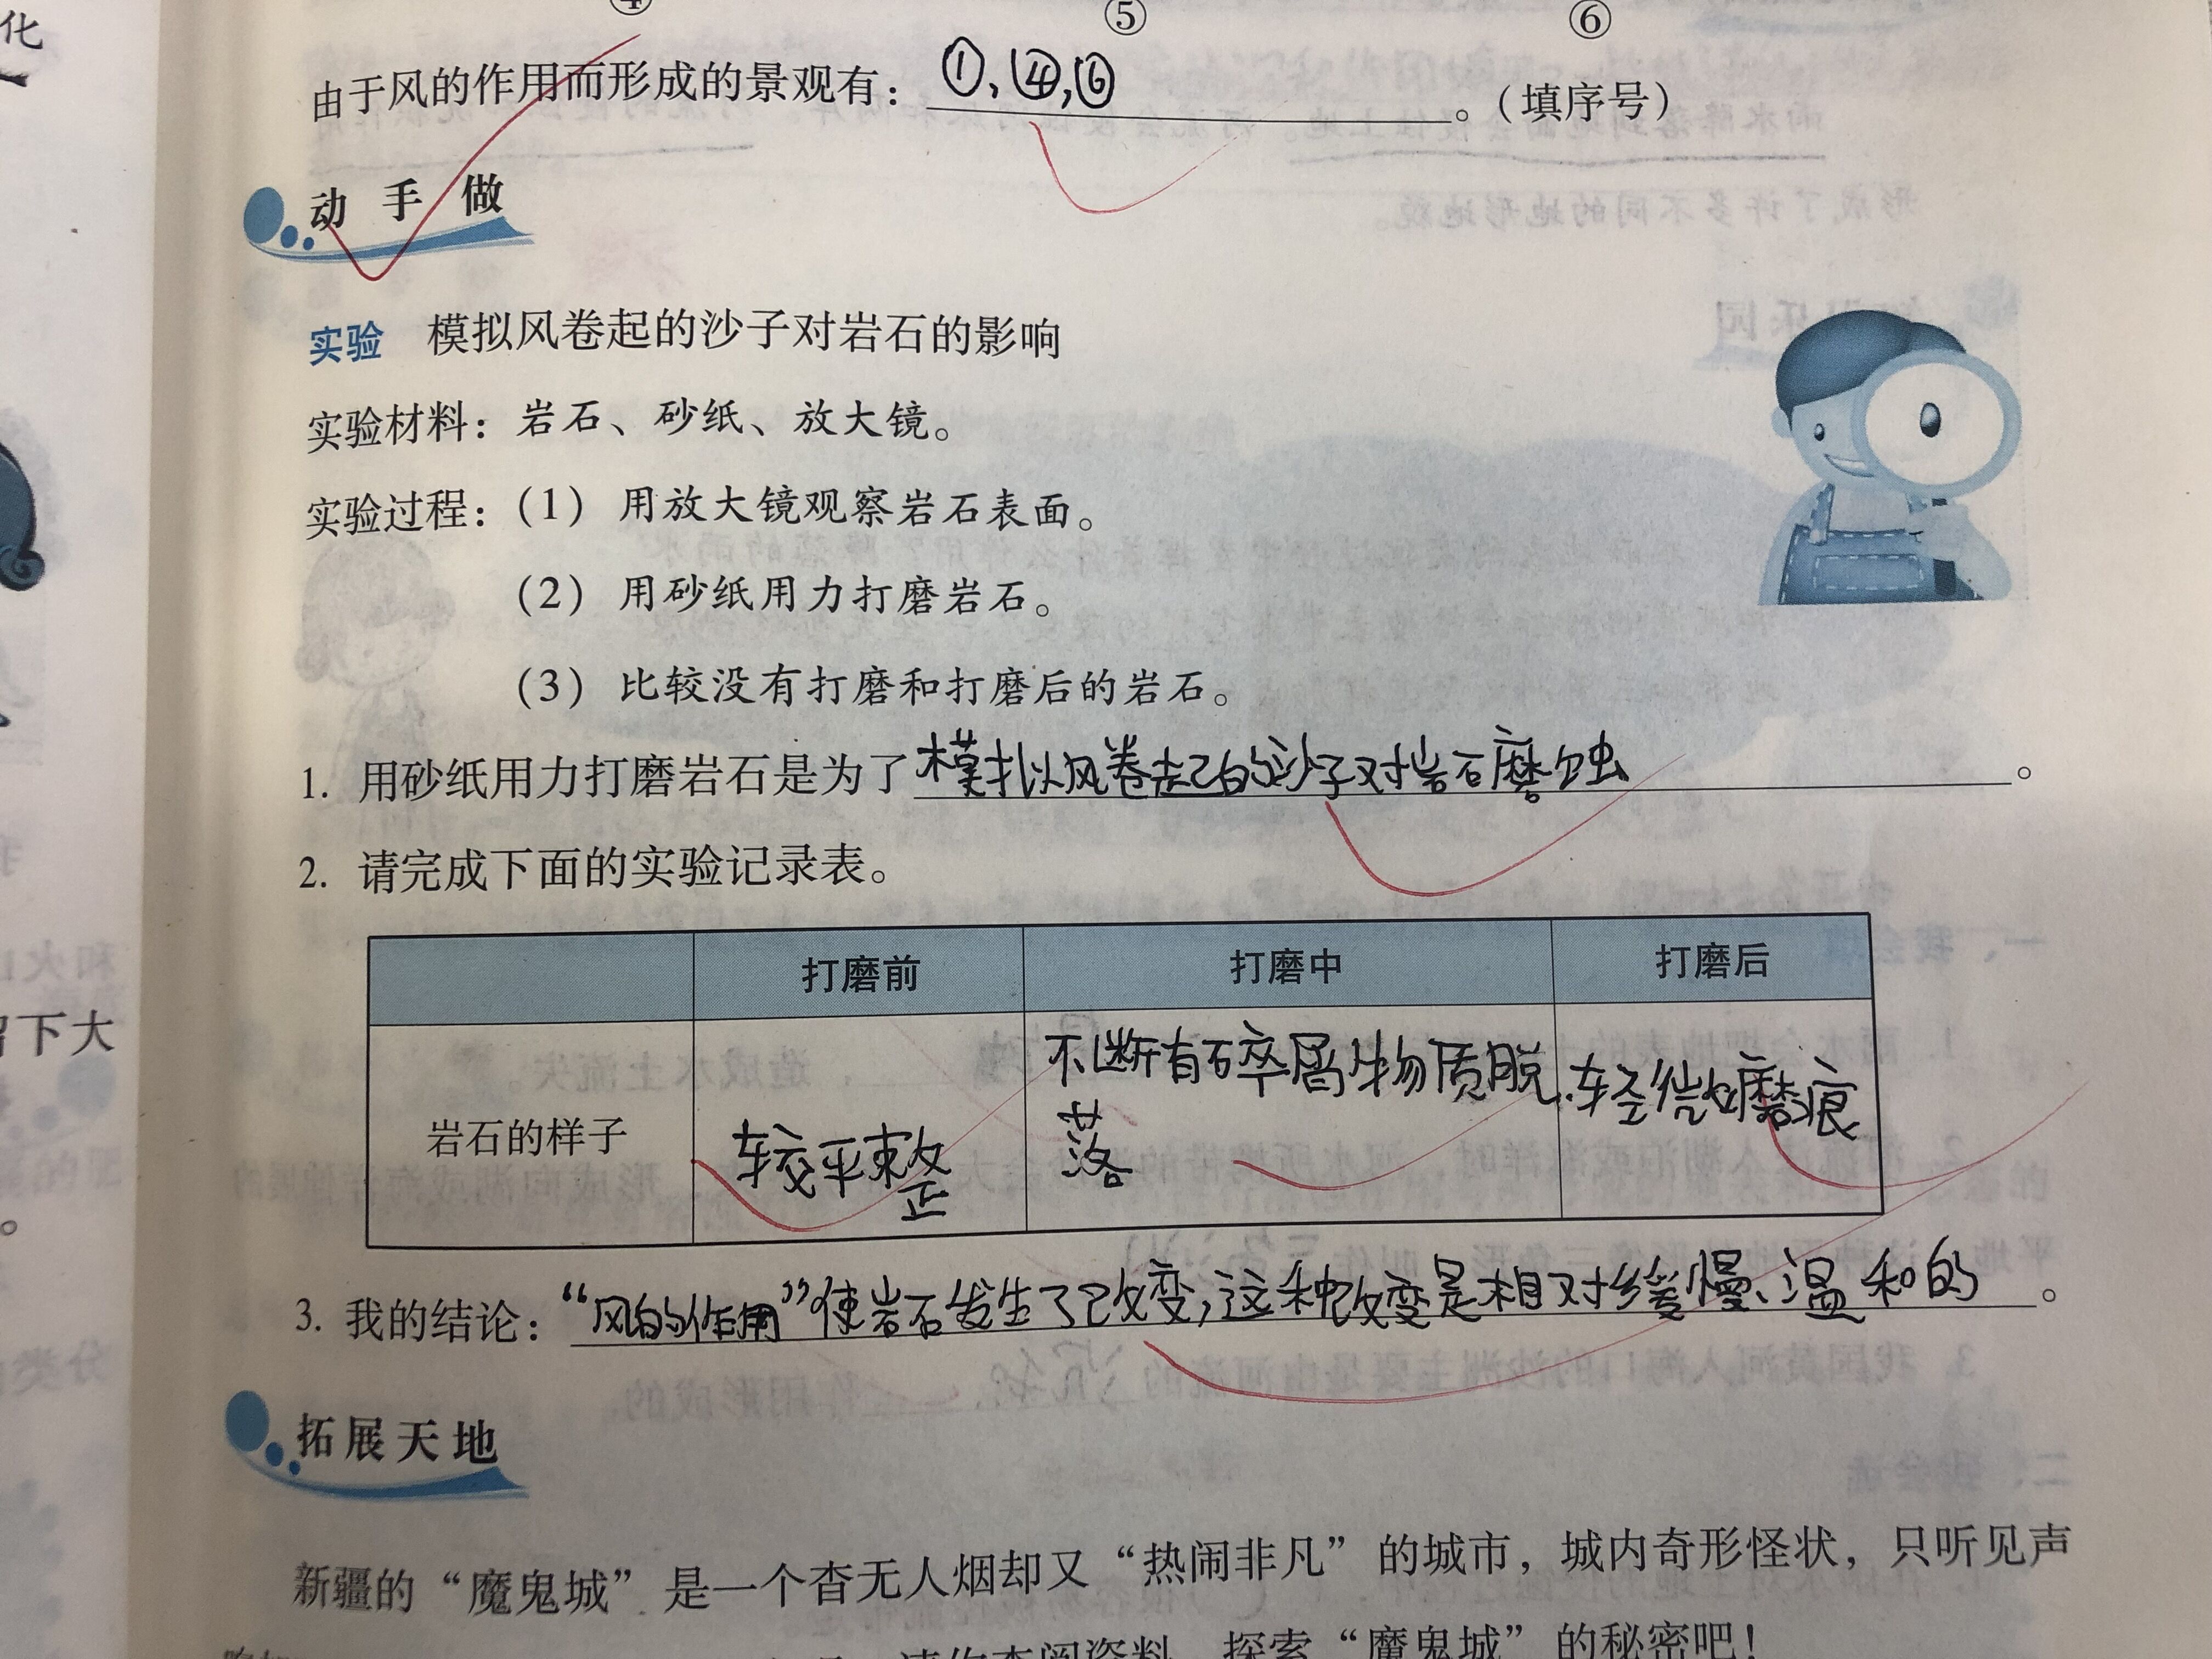 化
④ ⑤ ⑥
由于风的作用而形成的景观有：①、④,⑥。（填序号）
动手做
实验 模拟风卷起的沙子对岩石的影响
实验材料：岩石、砂纸、放大镜。
实验过程：（1） 用放大镜观察岩石表面。
（2） 用砂纸用力打磨岩石。
（3） 比较没有打磨和打磨后的岩石。
1. 用砂纸用力打磨岩石是为了模拟风卷起的沙子对岩石磨蚀。
2. 请完成下面的实验记录表。
打磨前 打磨中 打磨后
岩石的样子 较平整 不断有碎屑物质脱落. 轻微的磨痕
3. 我的结论：“风的作用”使岩石发生了改变,这种改变是相对缓慢、温和的。
拓展天地
新疆的“魔鬼城”是一个杳无人烟却又“热闹非凡”的城市，城内奇形怪状，只听见声
探索“魔鬼城”的秘密吧！
下大